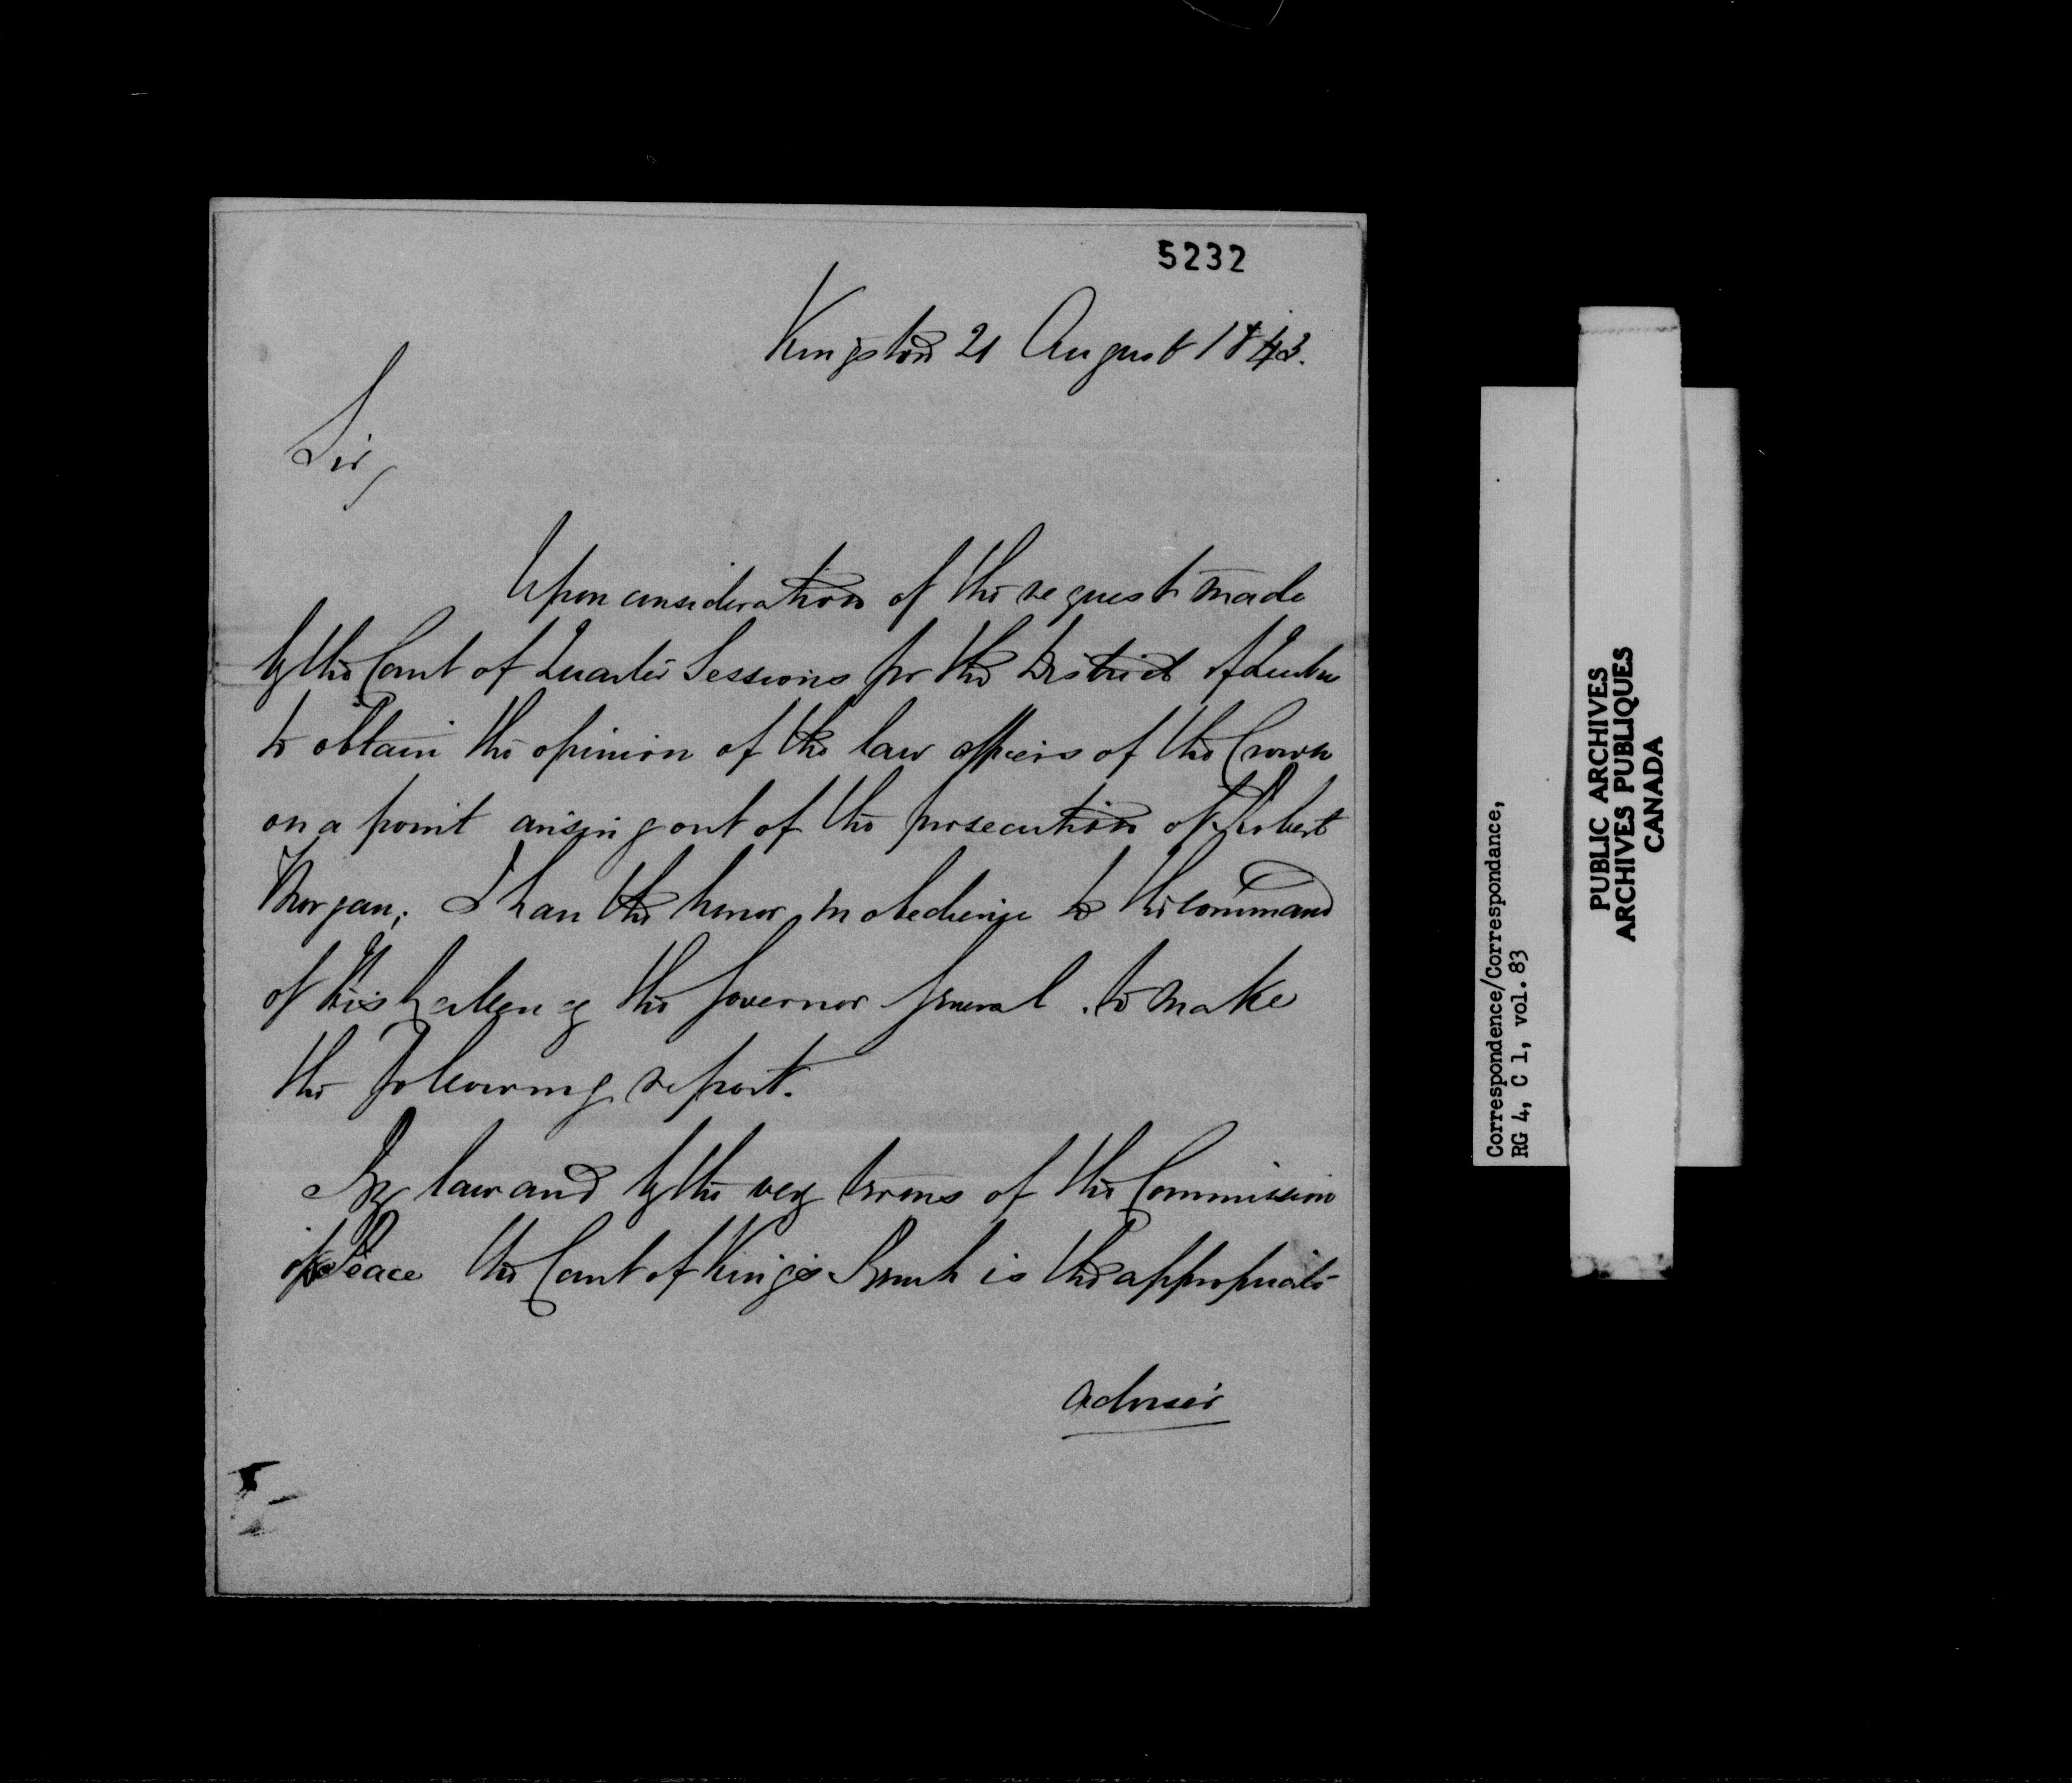 5232
Kingston 21 August 1843.
Sir,
Upon consideration of the request made
by the Court of Quarter Sessions for the District of Quebec
to obtain the opinion of the law officers of the Crown
on a point arising out of the prosecution of Robert
Morgan; I have the honor, in obedience to the command
of His Excellency the Governor General to make
the following report.
By law and by the very terms of the Commission
of Peace the Court of King's Bench is the appropriate
adviser
Correspondence/Correspondance,
RG 4, C 1, vol. 83
PUBLIC ARCHIVES
ARCHIVES PUBLIQUES
CANADA